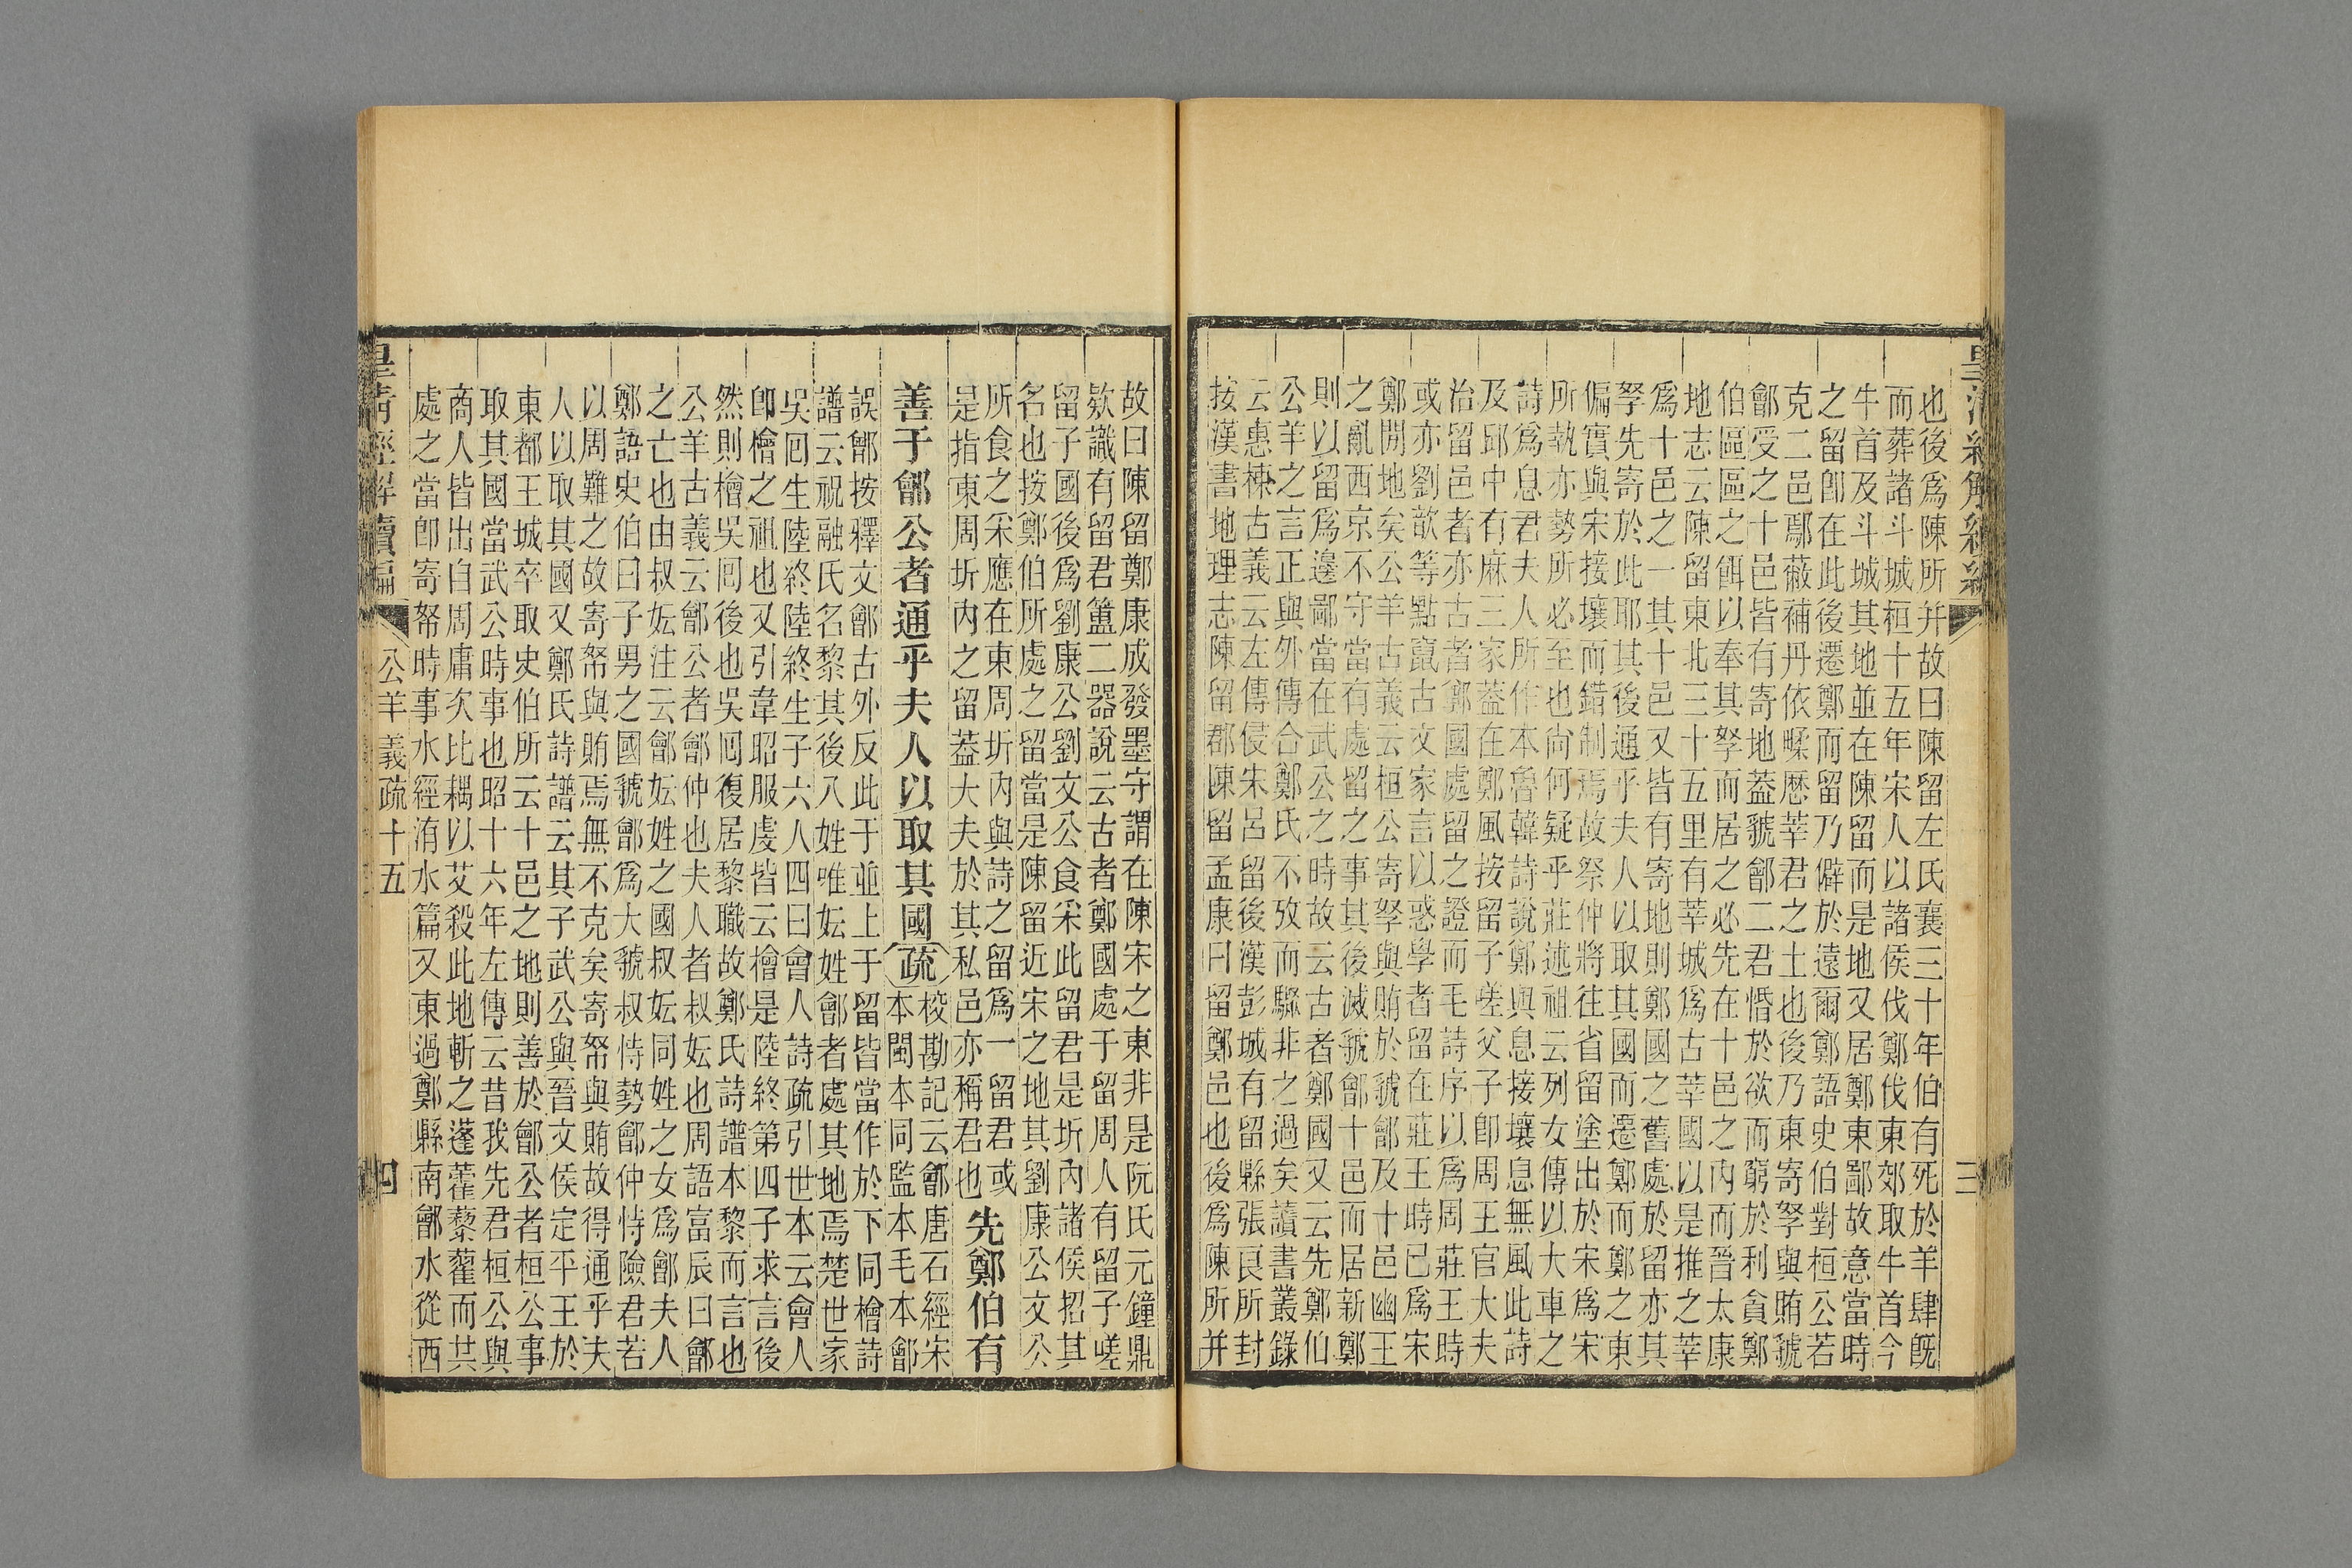 皇清經解續編 三
也後爲陳所并故曰陳留左氏襄三十年伯有死於羊肆既
而葬諸斗城桓十五年宋人以諸侯伐鄭伐東郊取牛首今
牛首及斗城其地並在陳留而是地又居鄭東鄙故意當時
之留卽在此後遷鄭而留乃僻於遠爾鄭語史伯對桓公若
克二邑鄢蔽補丹依㽥歷莘君之土也後乃東寄孥與賄虢
鄶受之十邑皆有寄地蓋虢鄶二君惛於欲而窮於利貪鄭
伯區區之餌以奉其孥而居之必先在十邑之內而晉太康
地志云陳留東北三十五里有莘城爲古莘國以是推之莘
爲十邑之一其十邑又皆有寄地則鄭國之舊處於留亦其
孥先寄於此耶其後通乎夫人以取其國而遷鄭而鄭之東
偏實與宋接壤而錯制焉故祭仲將往省留塗出於宋爲宋
所執亦勢所必至也尙何疑乎莊述祖云列女傳以大車之
詩爲息君夫人所作本魯韓詩說鄭與息接壤息無風此詩
及邱中有麻三家蓋在鄭風按留子嗟父子卽周王官大夫
治留邑者亦古者鄭國處留之證而毛詩序以爲周莊王時
或亦劉歆等點竄古文家言以惑學者留在莊王時已爲宋
鄭閒地矣公羊古義云桓公寄孥與賄於虢鄶及十邑幽王
之亂西京不守當有處留之事其後滅虢鄶十邑而居新鄭
則以留爲邊鄙當在武公之時故云古者鄭國又云先鄭伯
公羊之言正與外傳合鄭氏不攷而驟非之過矣讀書叢錄
云惠棟古義云左傳侵宋呂留後漢彭城有留縣張良所封
按漢書地理志陳留郡陳留孟康曰留鄭邑也後爲陳所并
故曰陳留鄭康成發墨守謂在陳宋之東非是阮氏元鐘鼎
欵識有留君簠二器說云古者鄭國處于留周人有留子嗟
留子國後爲劉康公劉文公食采此留君是圻內諸侯招其
名也按鄭伯所處之留當是陳留近宋之地其劉康公文公
所食之采應在東周圻內與詩之留爲一留君或
是指東周圻內之留蓋大夫於其私邑亦稱君也
先鄭伯有
善于鄶公者通乎夫人以取其國疏
校勘記云鄶唐石經宋
本閩本同監本毛本鄶
誤鄶按釋文鄶古外反此于並上于留皆當作於下同檜詩
譜云祝融氏名黎其後八姓唯妘姓鄶者處其地焉楚世家
吳回生陸終陸終生子六人四曰會人詩疏引世本云會人
卽檜之祖也又引韋昭服虔皆云檜是陸終第四子求言後
然則檜吳回後也吳回復居黎職故鄭氏詩譜本黎而言也
公羊古義云鄶公者鄶仲也夫人者叔妘也周語富辰曰鄶
之亡也由叔妘注云鄶妘姓之國叔妘同姓之女爲鄶夫人
鄭語史伯曰子男之國虢鄶爲大虢叔恃勢鄶仲恃險君若
以周難之故寄帑與賄焉無不克矣寄帑與賄故得通乎夫
人以取其國又鄭氏詩譜云其子武公與晉文侯定平王於
東都王城卒取史伯所云十邑之地則善於鄶公者桓公事
取其國當武公時事也昭十六年左傳云昔我先君桓公與
商人皆出自周庸次比耦以艾殺此地斬之蓬藿藜藋而共
處之當卽寄帑時事水經洧水篇又東過鄭縣南鄶水從西
皇清經解續編 公羊義疏十五 四